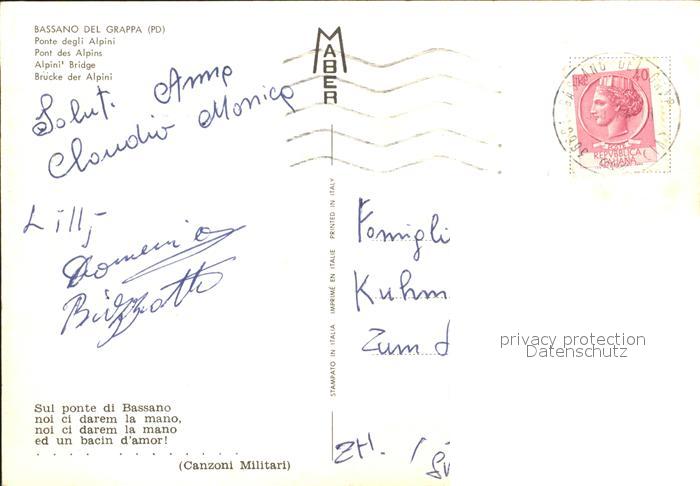 BASSANO DEL GRAPPA (PD)
Ponte degli Alpini
Pont des Alpins
Alpini' Bridge
Brücke der Alpini
MABER
LIRE 40
POSTE
REPVBBLICA
ITALIANA
Saluti Anna
Claudio Monica
Lilly
Domenico
Bizzotto
STAMPATO IN ITALIA IMPRIMÉ EN ITALIE PRINTED IN ITALY
Famigli
Kuhm
Zum
ZH.
privacy protection
Datenschutz
Sul ponte di Bassano
noi ci darem la mano,
noi ci darem la mano
ed un bacin d'amor!
. . . . . . . . . . . .
(Canzoni Militari)